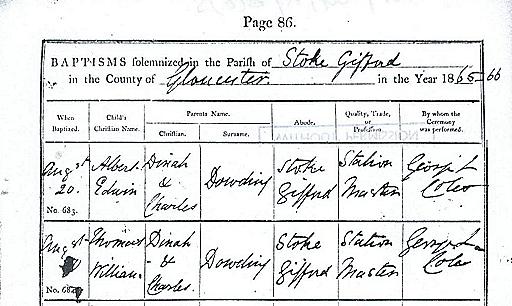 Page 86.
BAPTISMS solemnized in the Parish of Stoke Gifford
in the County of Gloucester. in the Year 1865-66
When Baptized. Child's Christian Name. Parents Name. Christian. Surname. Abode. Quality, Trade, or Profession. By whom the Ceremony was performed.
Augst 20. No. 683. Albert Edwin Dinah & Charles Dowding Stoke Gifford Station Master George L Coles
Augst No. 684. Thomas William Dinah & Charles. Dowding Stoke Gifford Station Master George L Coles